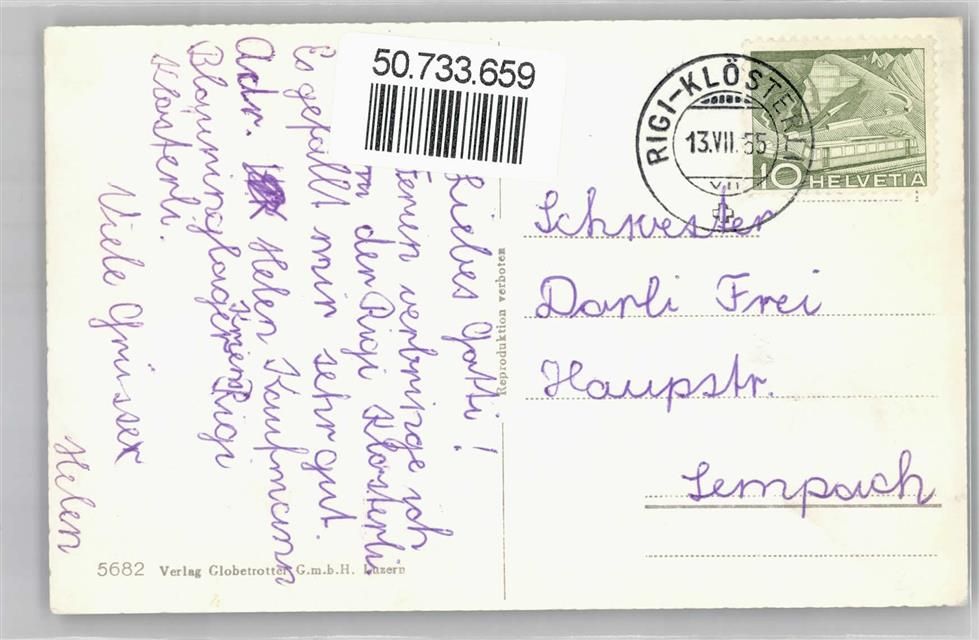 50.733.659
RIGI-KLÖSTERLI
13.VII.55
VII
10 HELVETIA
Liebes Gotti!
Ferien verbringe ich
den Rigi Klösterli
Es gefällt mir sehr gut.
Adr. Helen Kaufmann
Ferien
Rigi
Klösterli.
Viele Grüsse
Helen
Schwester
Darli Frei
Haupstr.
Sempach
Reproduktion verboten
5682 Verlag Globetrotter G.m.b.H. Luzern